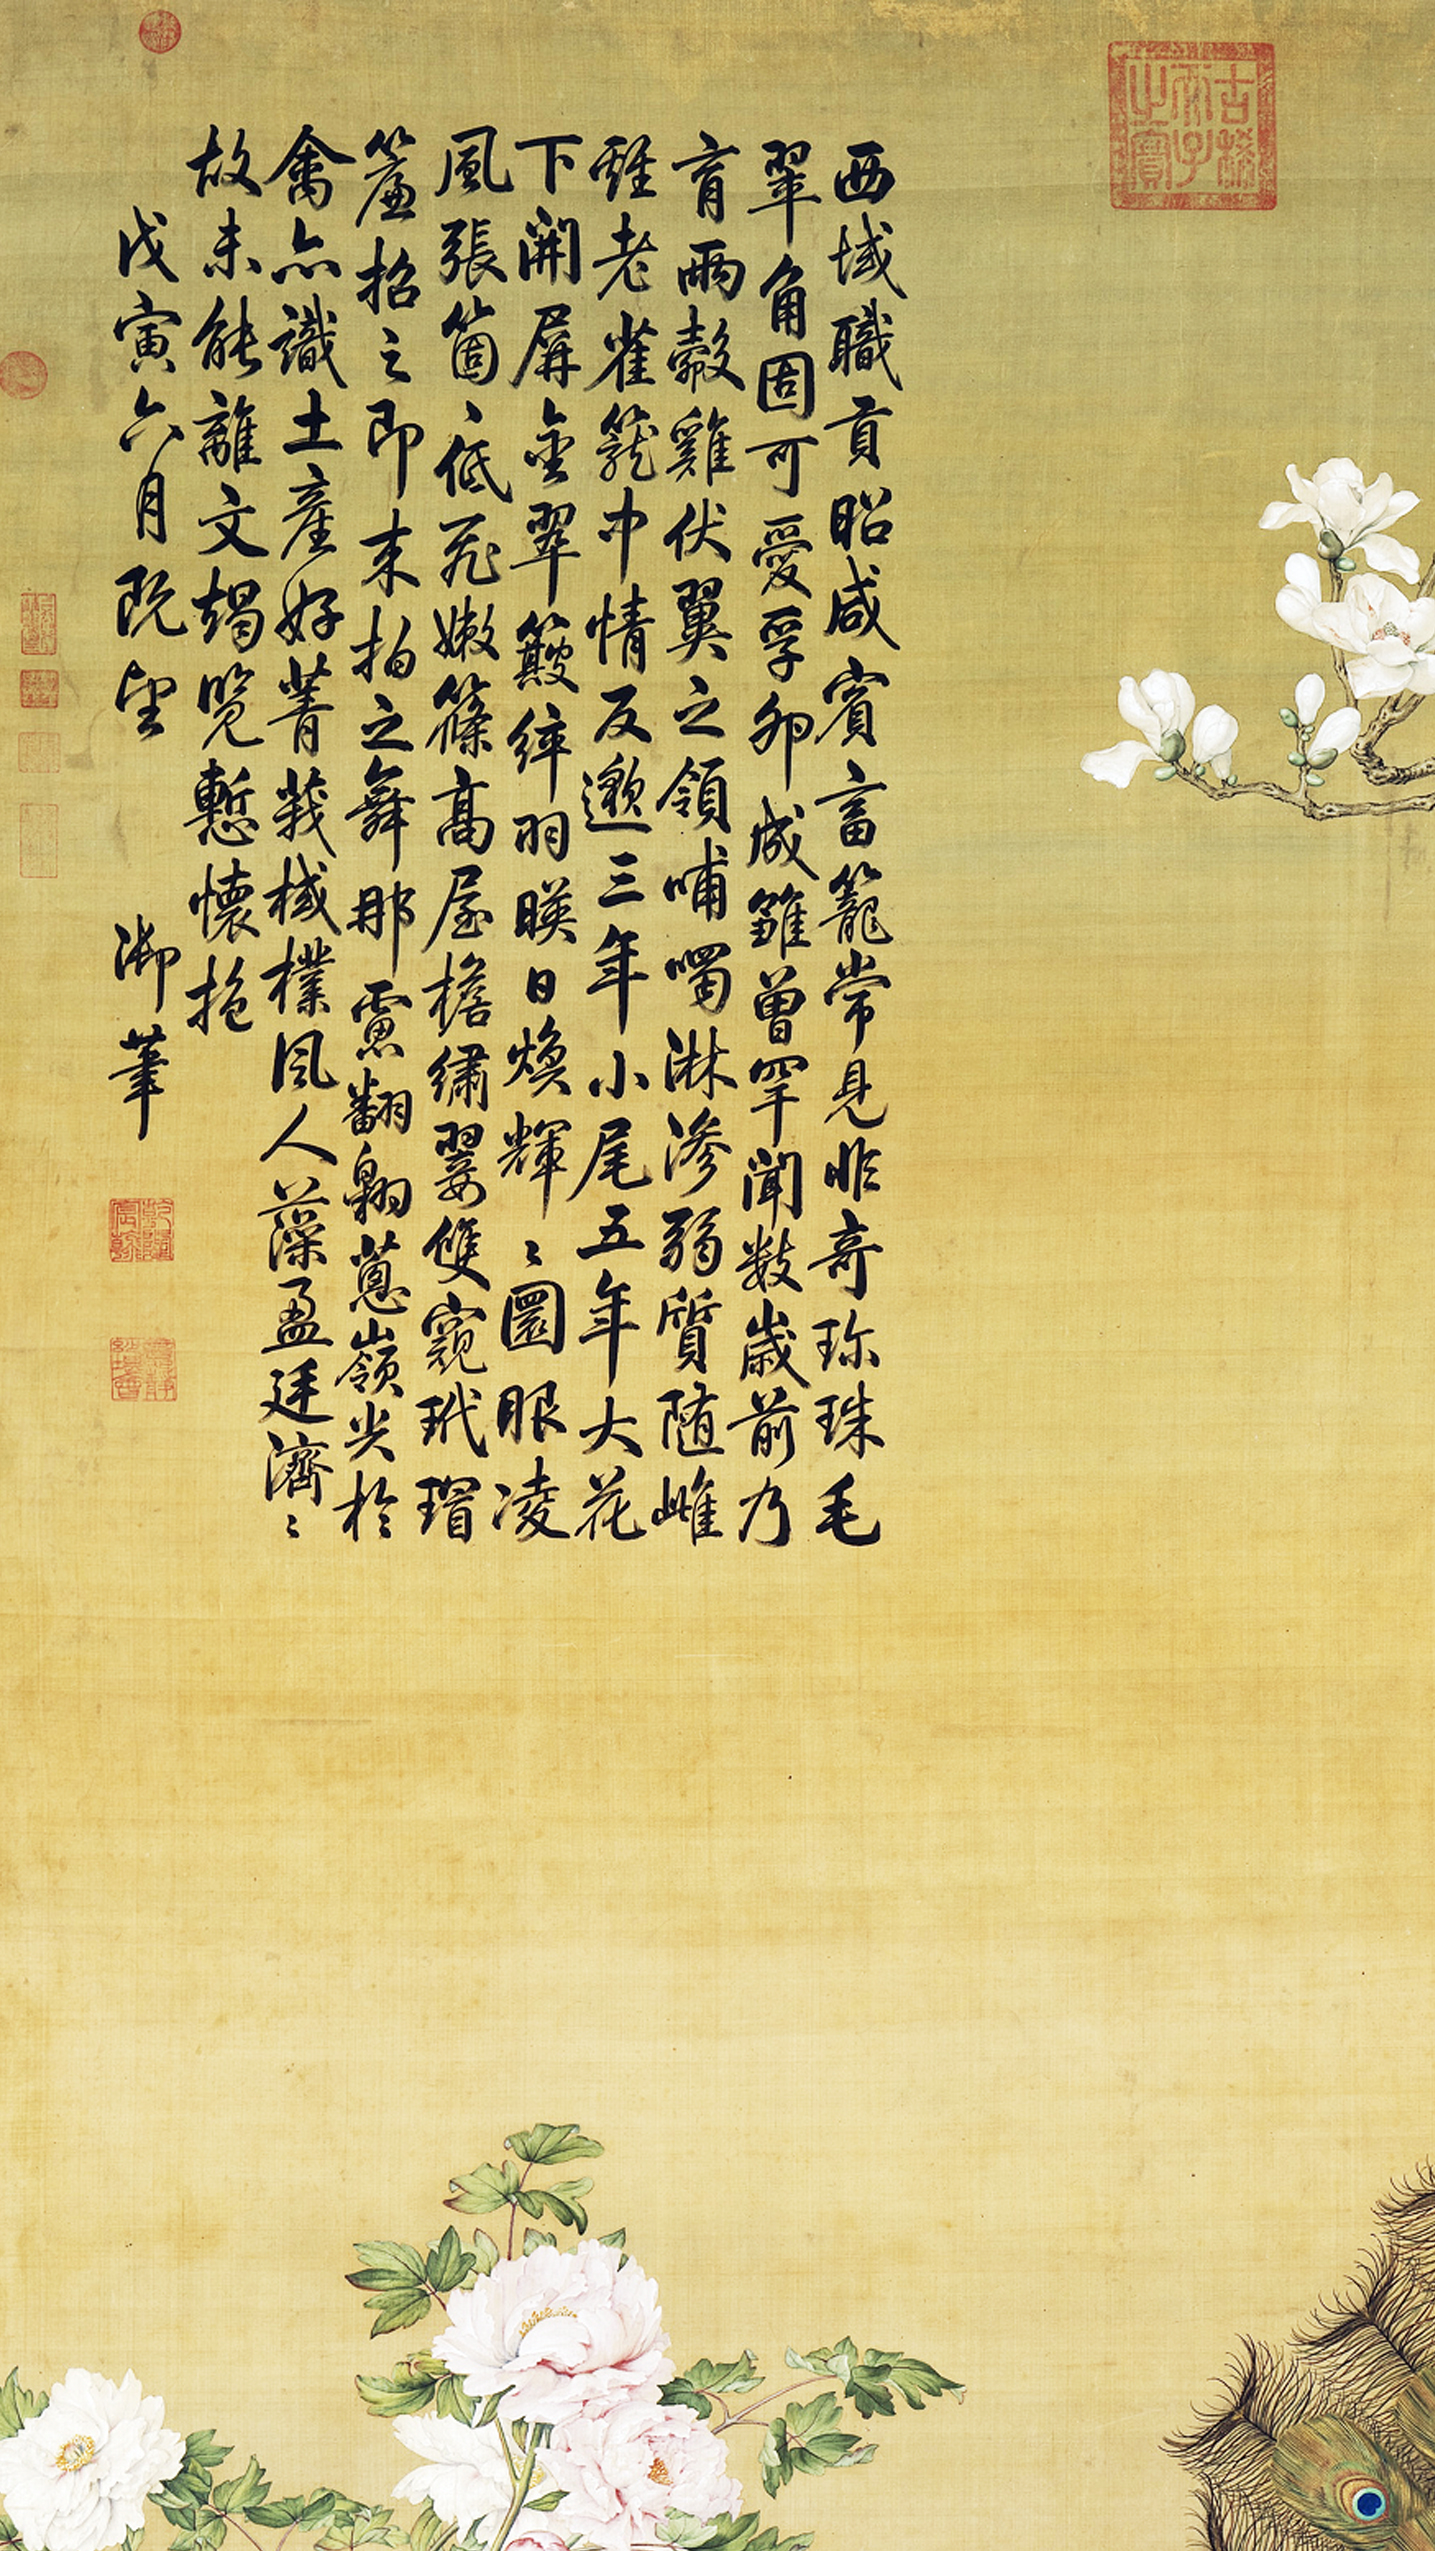 古稀天子之寶
西域職貢昭咸賓畜籠常見非奇珍珠毛
翠角固可愛孚卵成雛曾罕聞數歲前乃
育兩鷇雞伏翼之領哺噣淋滲弱質隨雌
雄老雀籠中情反邀三年小尾五年大花
下開屏金翠簸綷羽暎日煥輝〻圜眼凌
風張箇〻低飛嫩篠高屋檐繡翣雙窺玳瑁
簾招之即来拍之舞那慮翻翱蔥嶺尖於
禽亦識土產好菁莪棫樸風人藻盈廷濟〻
故未能離文竭覽慙懷抱
戊寅六月既望 御筆
乾隆宸翰